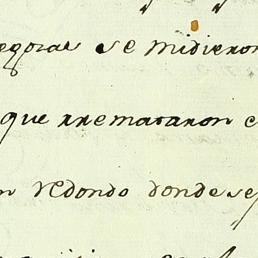 egoras se midieron
que rrematanon e
n redondo donde se